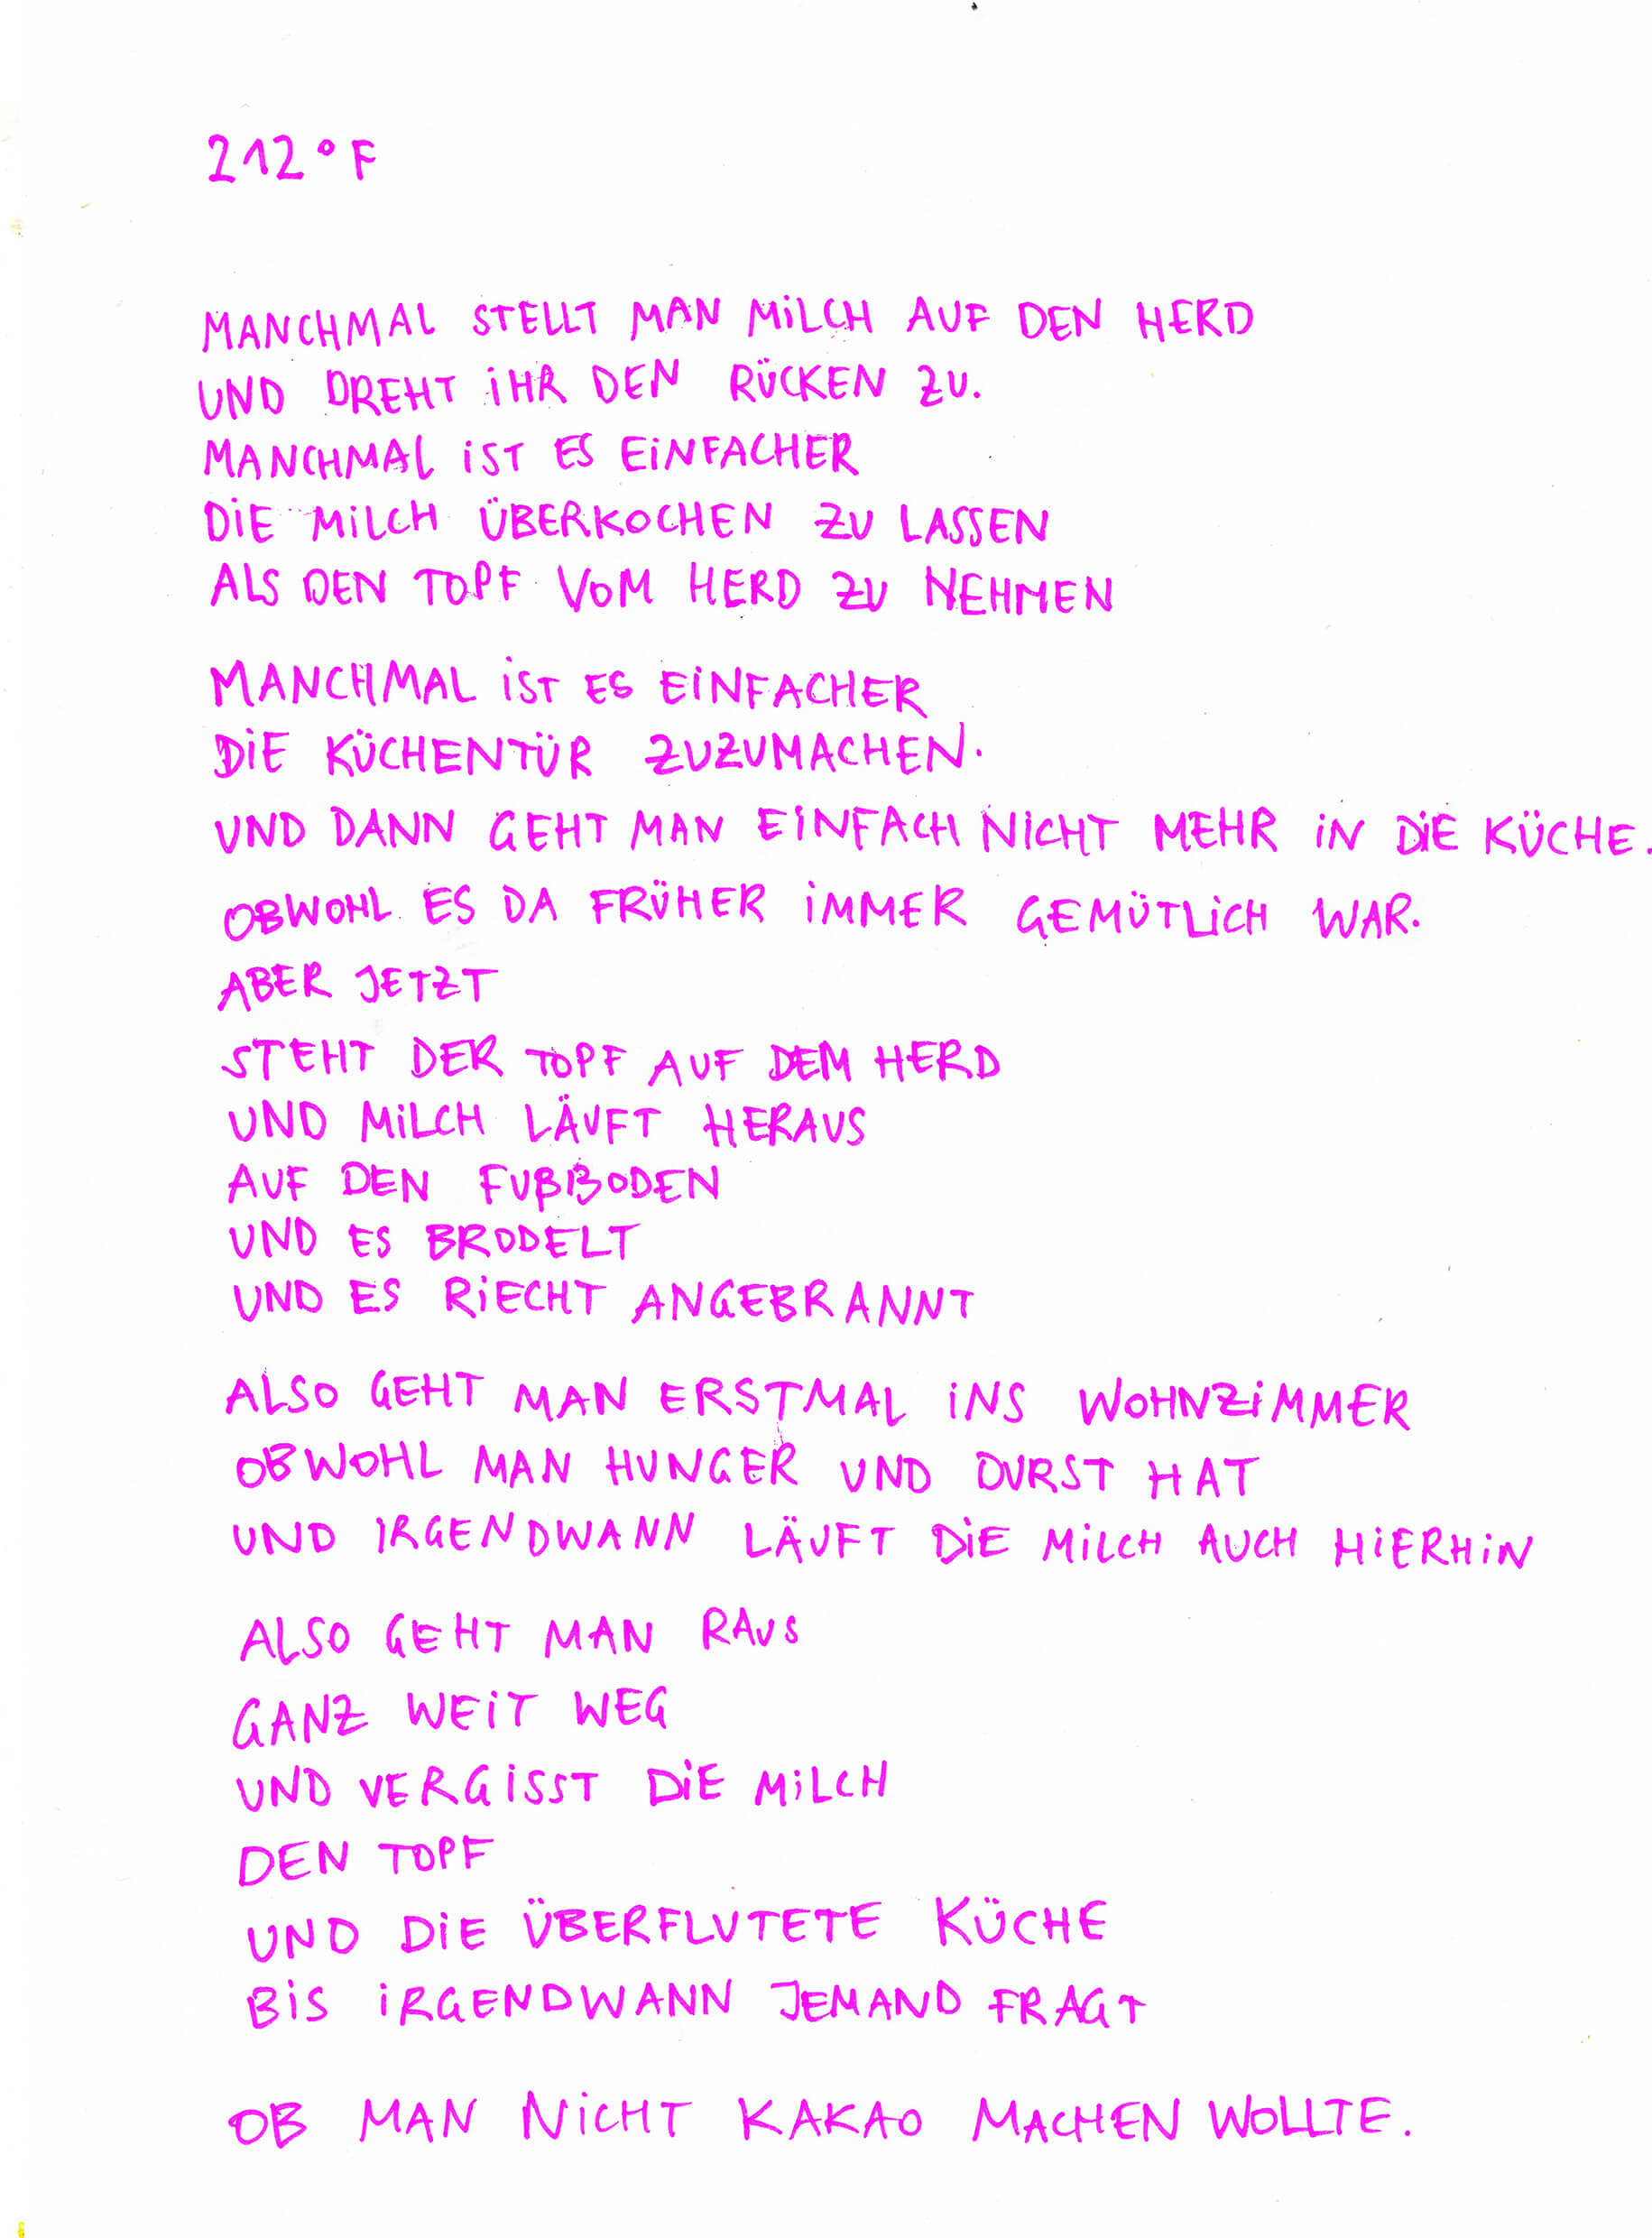 212°F
MANCHMAL STELLT MAN MiLCH AUF DEN HERD
UND DREHT iHR DEN RÜCKEN ZU.
MANCHMAL iST ES EiNFACHER
DiE MiLCH ÜBERKOCHEN ZU LASSEN
ALS DEN TOPF VOM HERD ZU NEHMEN
MANCHMAL iST ES EiNFACHER
DiE KÜCHENTÜR ZUZUMACHEN.
UND DANN GEHT MAN EiNFACH NICHT MEHR iN DiE KÜCHE.
OBWOHL ES DA FRÜHER iMMER GEMÜTLiCH WAR.
ABER JETZT
STEHT DER TOPF AUF DEM HERD
UND MiLCH LÄUFT HERAUS
AUF DEN FUßBODEN
UND ES BRODELT
UND ES RiECHT ANGEBRANNT
ALSO GEHT MAN ERSTMAL iNS WOHNZiMMER
OBWOHL MAN HUNGER UND DURST HAT
UND IRGENDWANN LÄUFT DiE MiLCH AUCH HiERHiN
ALSO GEHT MAN RAUS
GANZ WEiT WEG
UND VERGiSST DiE MiLCH
DEN TOPF
UND DiE ÜBERFLUTETE KÜCHE
BiS iRGENDWANN JEMAND FRAGT
OB MAN NiCHT KAKAO MACHEN WOLLTE.